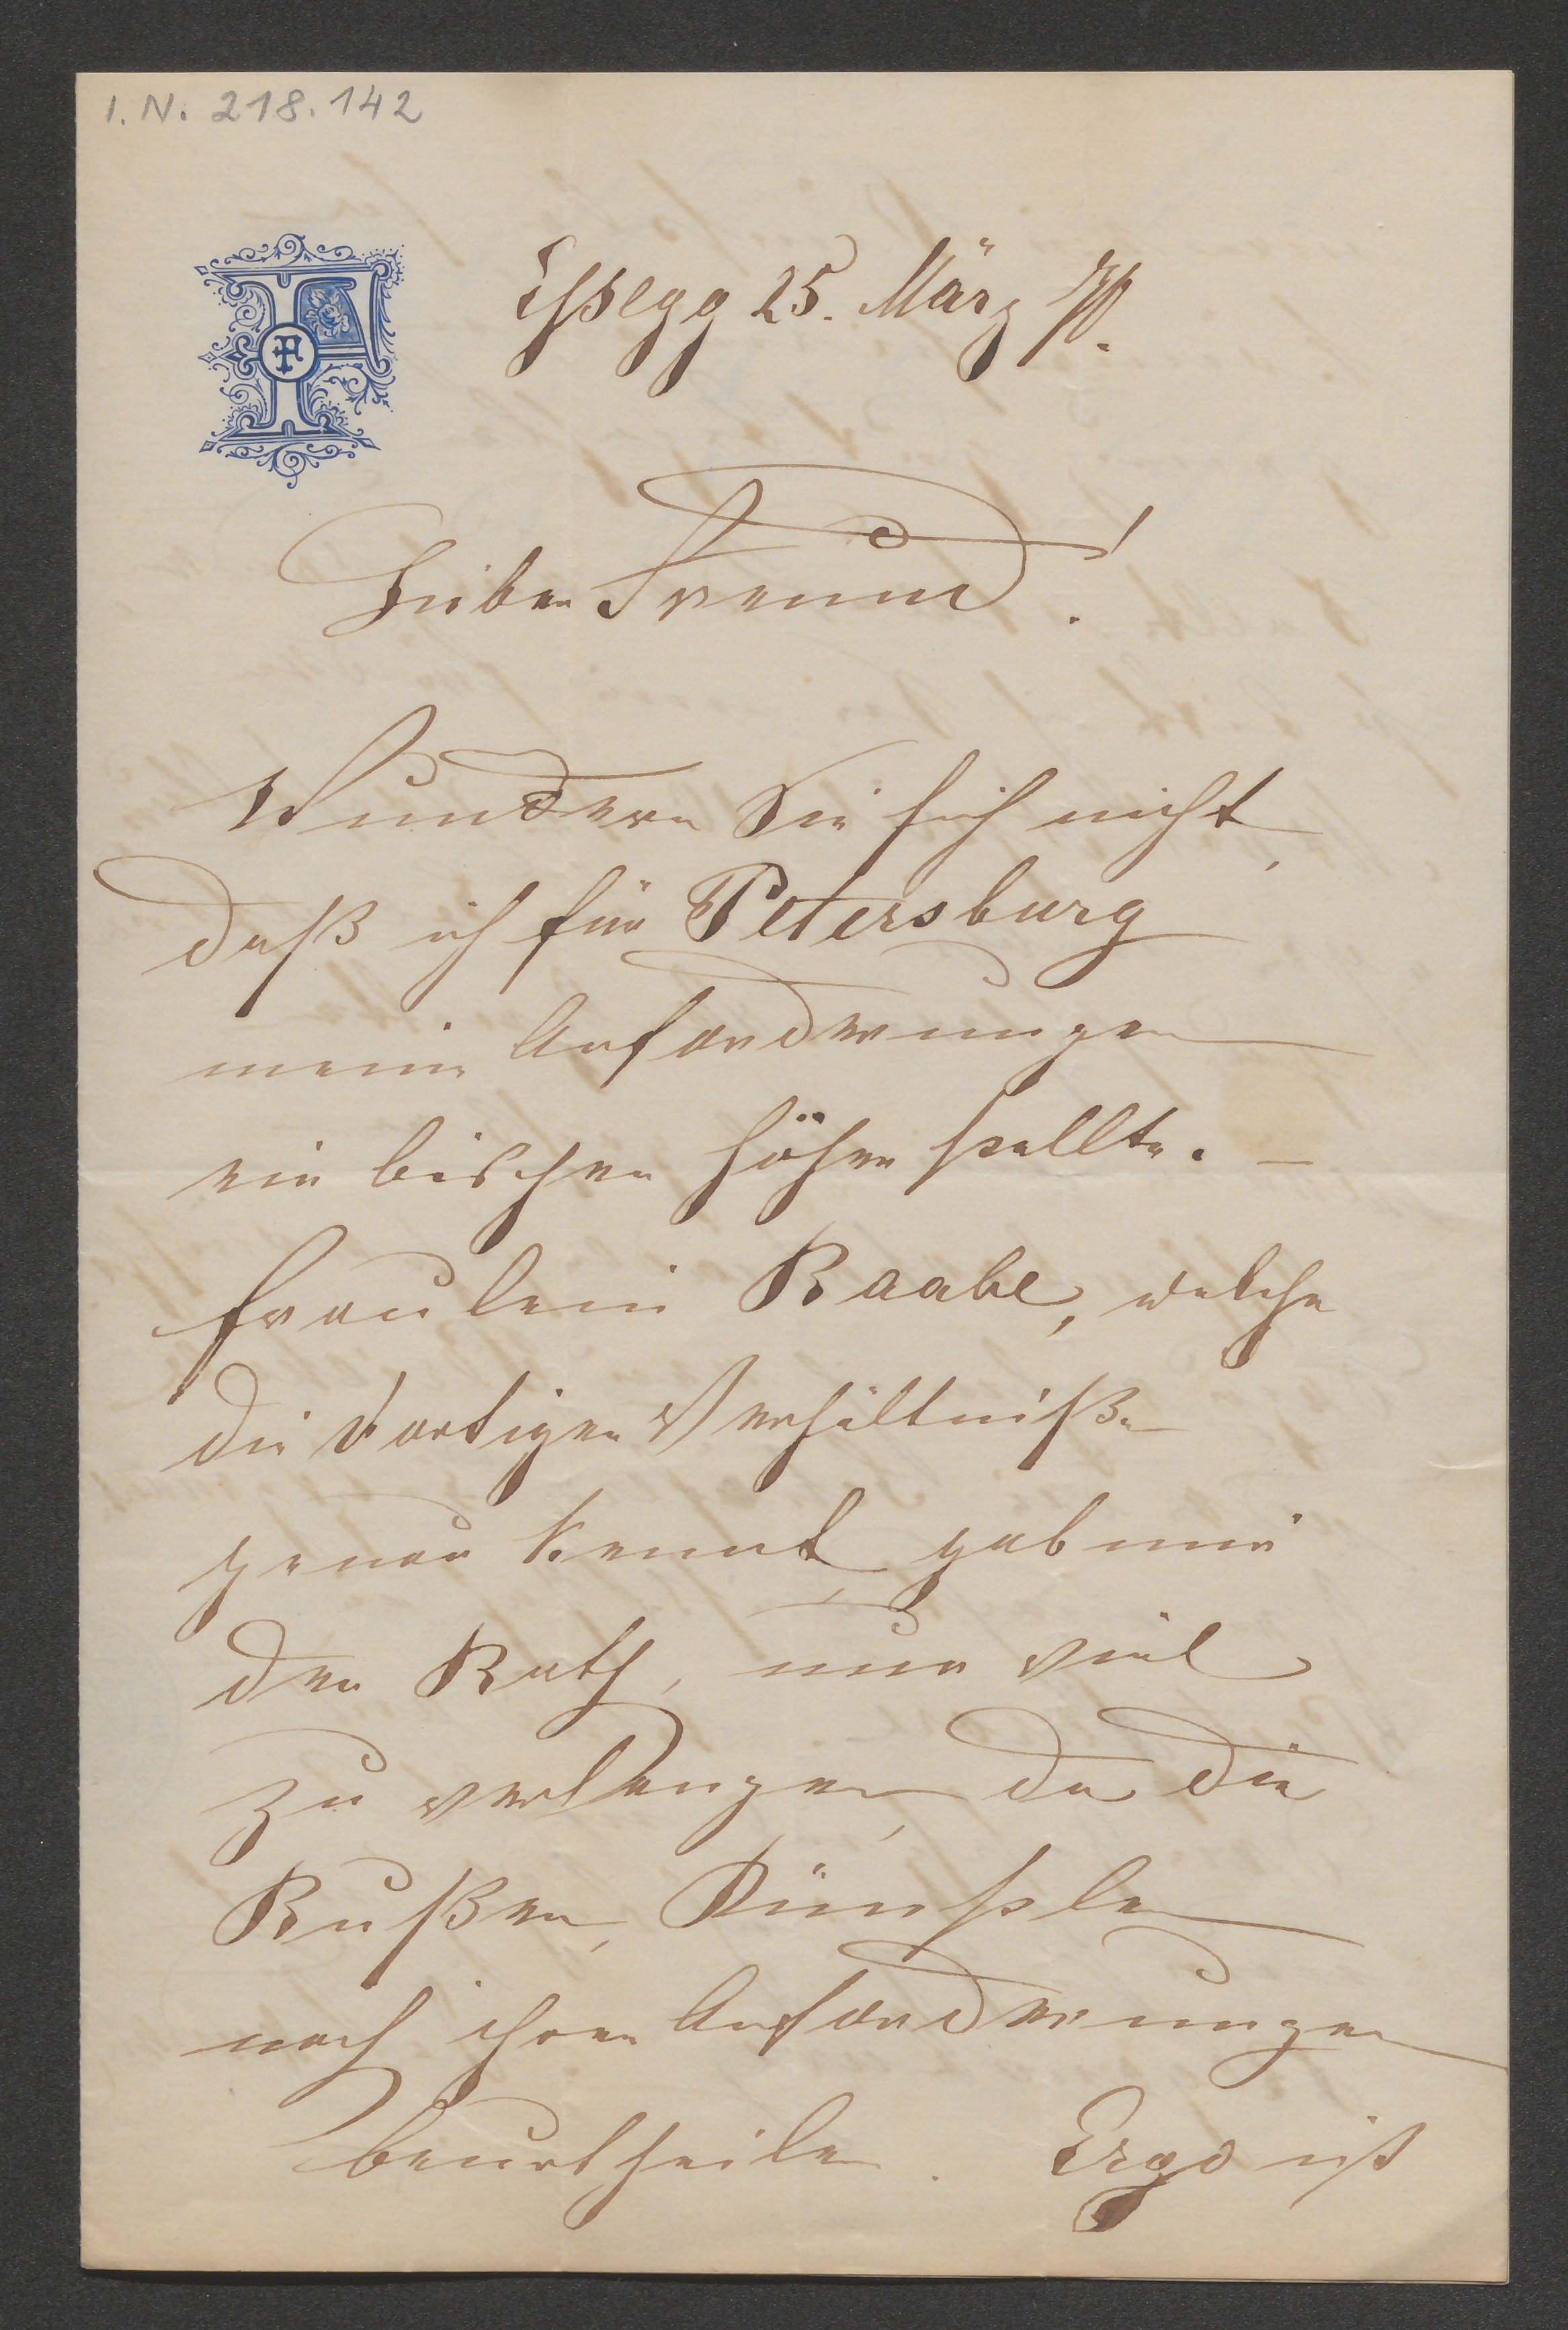 I.N. 218.142
Essegg 25. März 70.
Lieber Freund!
Wundern Sie sich nicht,
daß ich für Petersburg
meine Anforderungen
ein bischen höher stellte. —
Fräulein Raabe, welche
die dortigen Verhältniße
genau kennt, gab mir
den Rath, nur viel
zu verlangen, da die
Rußen, Künstler
nach ihren Anforderungen
beurtheilen. Ergo ist